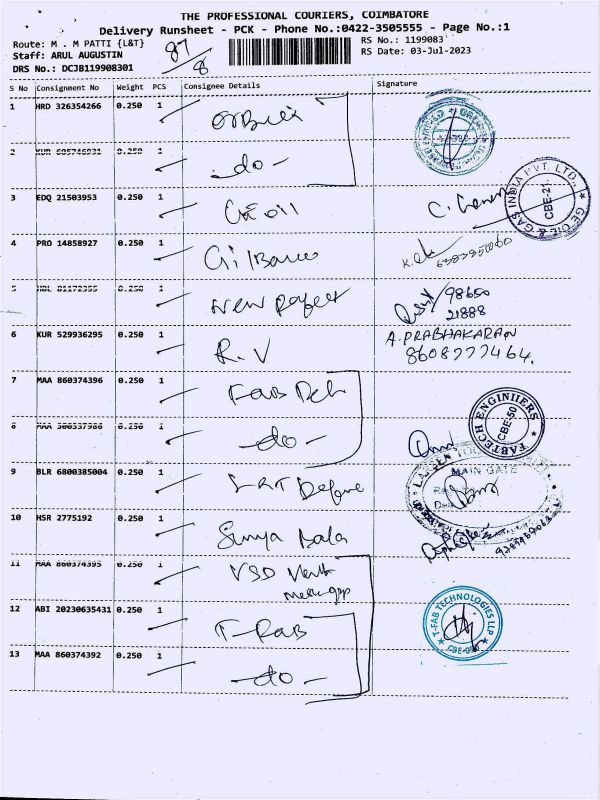 THE PROFESSIONAL COURIERS, COIMBATORE
Delivery Runsheet - PCK - Phone No.:0422-3505555 - Page No.:1
Route: M . M PATTI {L&T}
87/8
RS No.: 1199083
Staff: ARUL AUGUSTIN
RS Date: 03-Jul-2023
DRS No.: DCJB119908301
S No Consignment No Weight PCS Consignee Details Signature
1 HRD 326354266 0.250 1
2 0.250 1 - do -
3 EDQ 21503953 0.250 1 GE oil
GE OIL & GAS INDIA PVT. LTD. CBE-21.
4 PRO 14858927 0.250 1 Gilbarco
5 0.250 1 New
98650
21888
6 KUR 529936295 0.250 1 R.V
A.PRABHAKARAN
8608777464.
7 MAA 860374396 0.250 1 Fab Tech
8 0.250 1 - do -
FABTECH ENGINIIERS CBE-50
9 BLR 6800385004 0.250 1 L&T Defence
MAIN GATE
10 HSR 2775192 0.250 1 Surya Bala
11 MAA 860374395 0.250 1 VSD
12 ABI 20230635431 0.250 1 T-FAB
T-FAB TECHNOLOGIES LLP
13 MAA 860374392 0.250 1 - do -